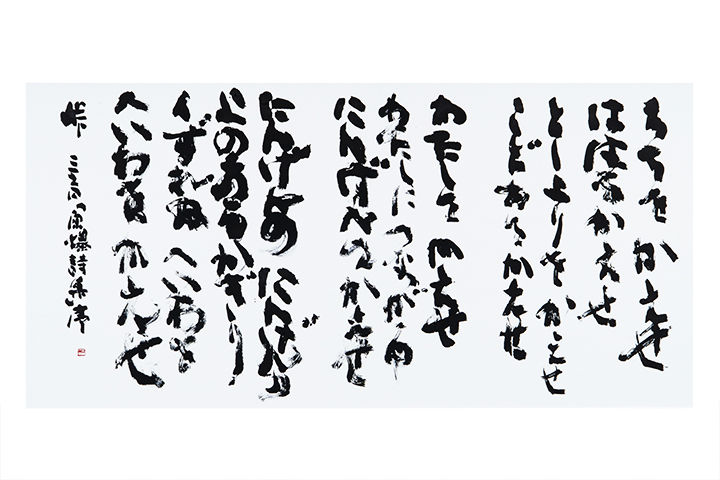 ちちをかえせ
ははをかえせ
としよりをかえせ
こどもをかえせ
わたしをかえせ
わたしにつながる
にんげんをかえせ
にんげんの にんげんの
よのあるかぎり
くずれぬ へいわを
へいわを かえせ
峠 三吉「原爆詩集序